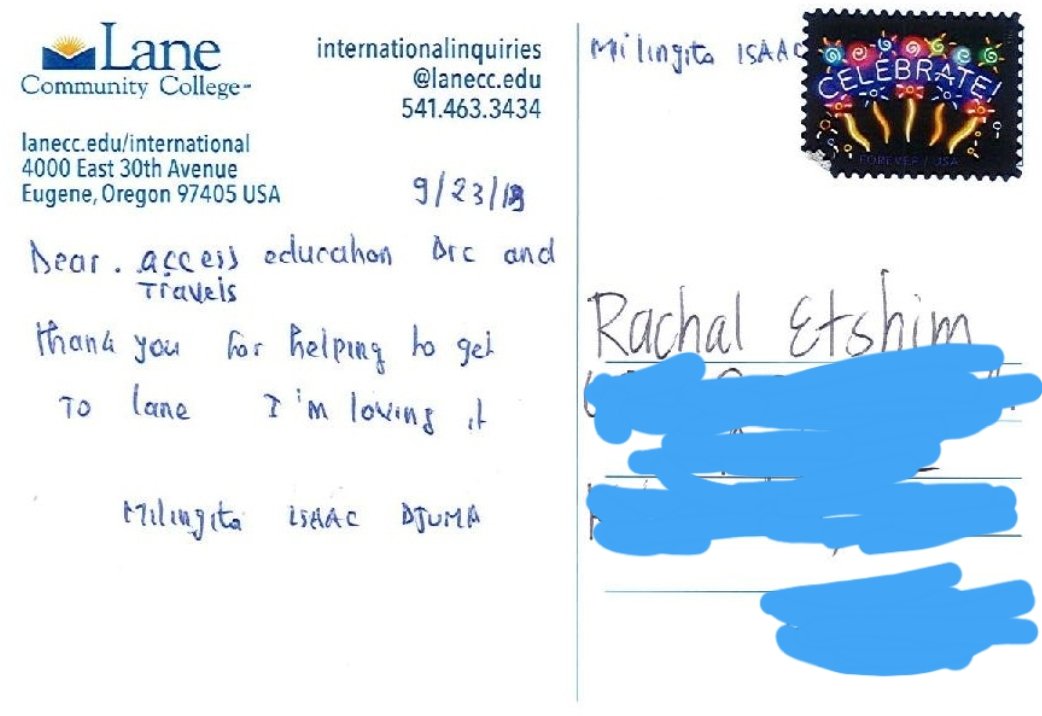 Lane
Community College
internationalinquiries
@lanecc.edu
541.463.3434
lanecc.edu/international
4000 East 30th Avenue
Eugene, Oregon 97405 USA
9/23/18
Dear. access education Drc and
Travels
thank you for helping to get
To lane I'm loving it
Milingita ISAAC DJUMA
Milingita ISAAC
CELEBRATE!
FOREVER / USA
Rachal Etshim